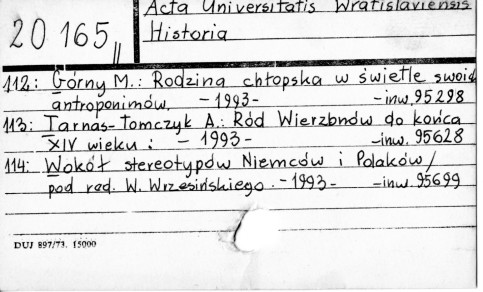 Acta Universitatis Wratislaviensis
20 165 II
Historia
112: Górny M.: Rodzina chłopska w świetle swoich
antroponimów. - 1993 - - inw. 95298
113: Tarnas-Tomczyk A.: Ród Wierzbnów do końca
XIV wieku: - 1993 - - inw. 95628
114: Wokół stereotypów Niemców i Polaków /
pod red. W. Wrzesińskiego. - 1993 - - inw. 95699
DUJ 897/73. 15000